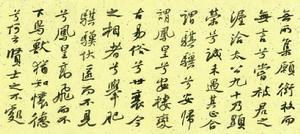 無所集願銜枚而
無言兮嘗被君之
渥洽太公九十乃顯
榮兮誠未遇其匹合
謂騏驥兮安歸
謂鳳皇兮安棲變
古易俗兮世衰今
之相者兮舉肥
騏驥伏匿而不見
兮鳳皇高飛而不
下鳥獸猶知懷德
兮何云賢士之不處